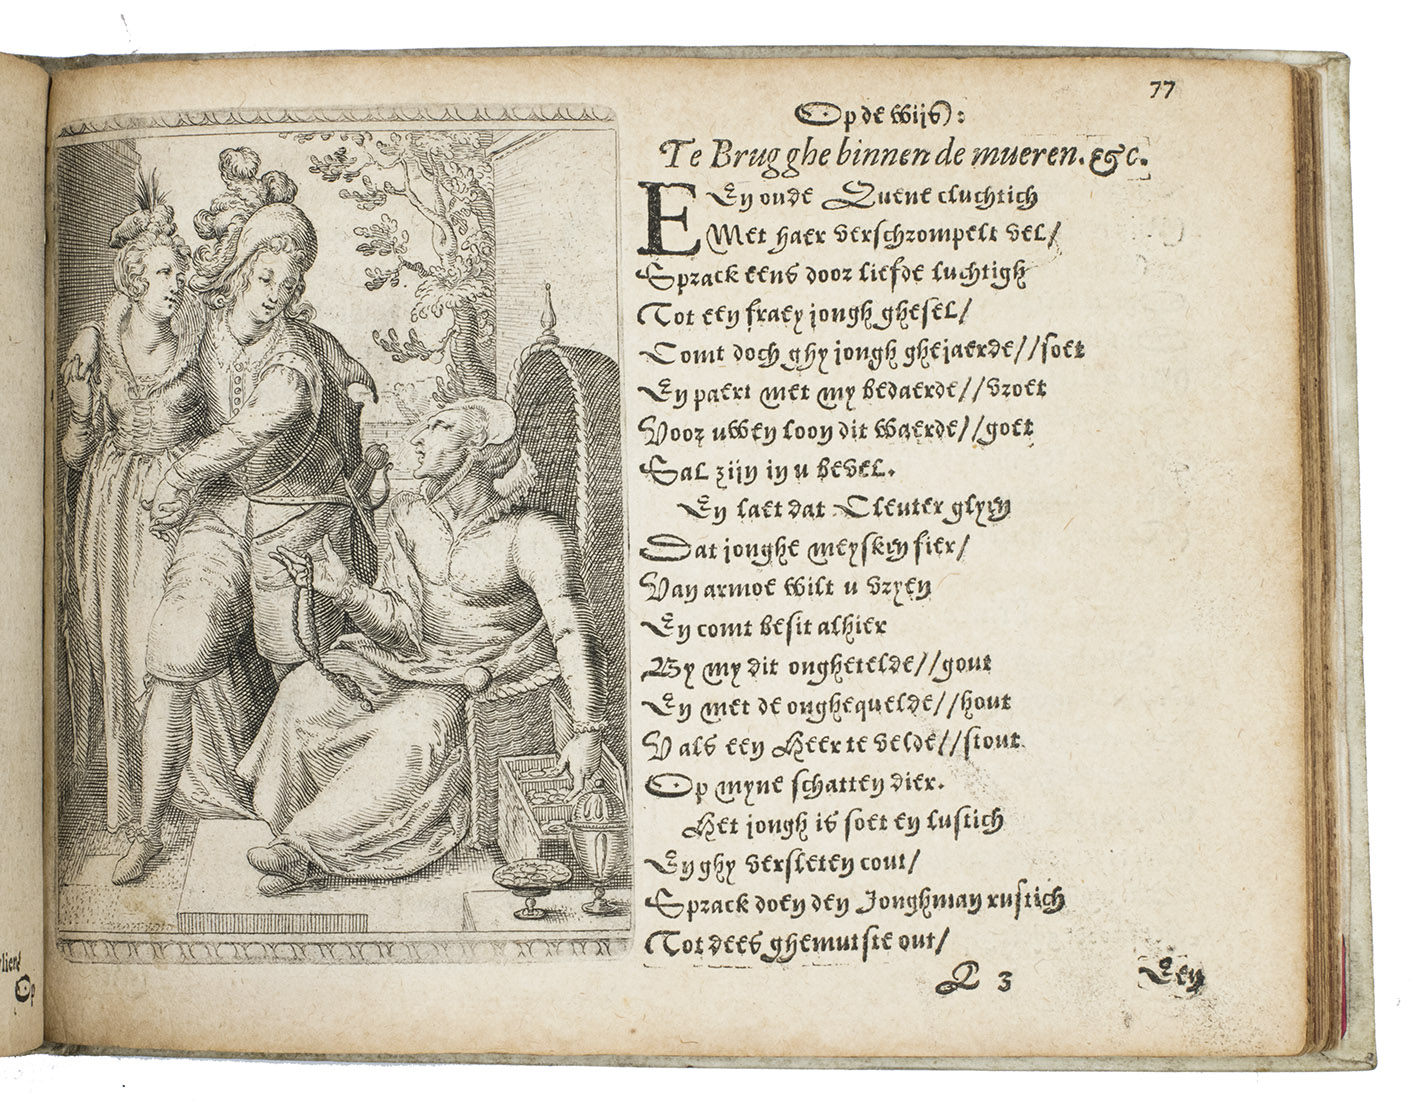 77
Op de wijs:
Te Brugghe binnen de mueren. &c.
EEn oude Quene cluchtich
Met haer verschrompelt vel/
Sprack eens door liefde luchtigh
Tot een fraey jongh ghesel/
Comt doch ghy jongh ghejaerde//soet
En paert met my bedaerde//vroet
Voor uwen loon dit waerde//goet
Sal zijn in u bevel.
En laet dat Cleuter glyen
Dat jonghe meysken fier/
Van armoe wilt u vryen
En comt besit alhier
By my dit onghetelde//gout
En met de onghequelde//hout
Vals een Heer te velde//stout
Op myne schatten dier.
Het jongh is soet en lustich
En ghy versleten cout/
Sprack doen den Jonghman rustich
Tot dees ghemutste out/
Q 3
Een
Op